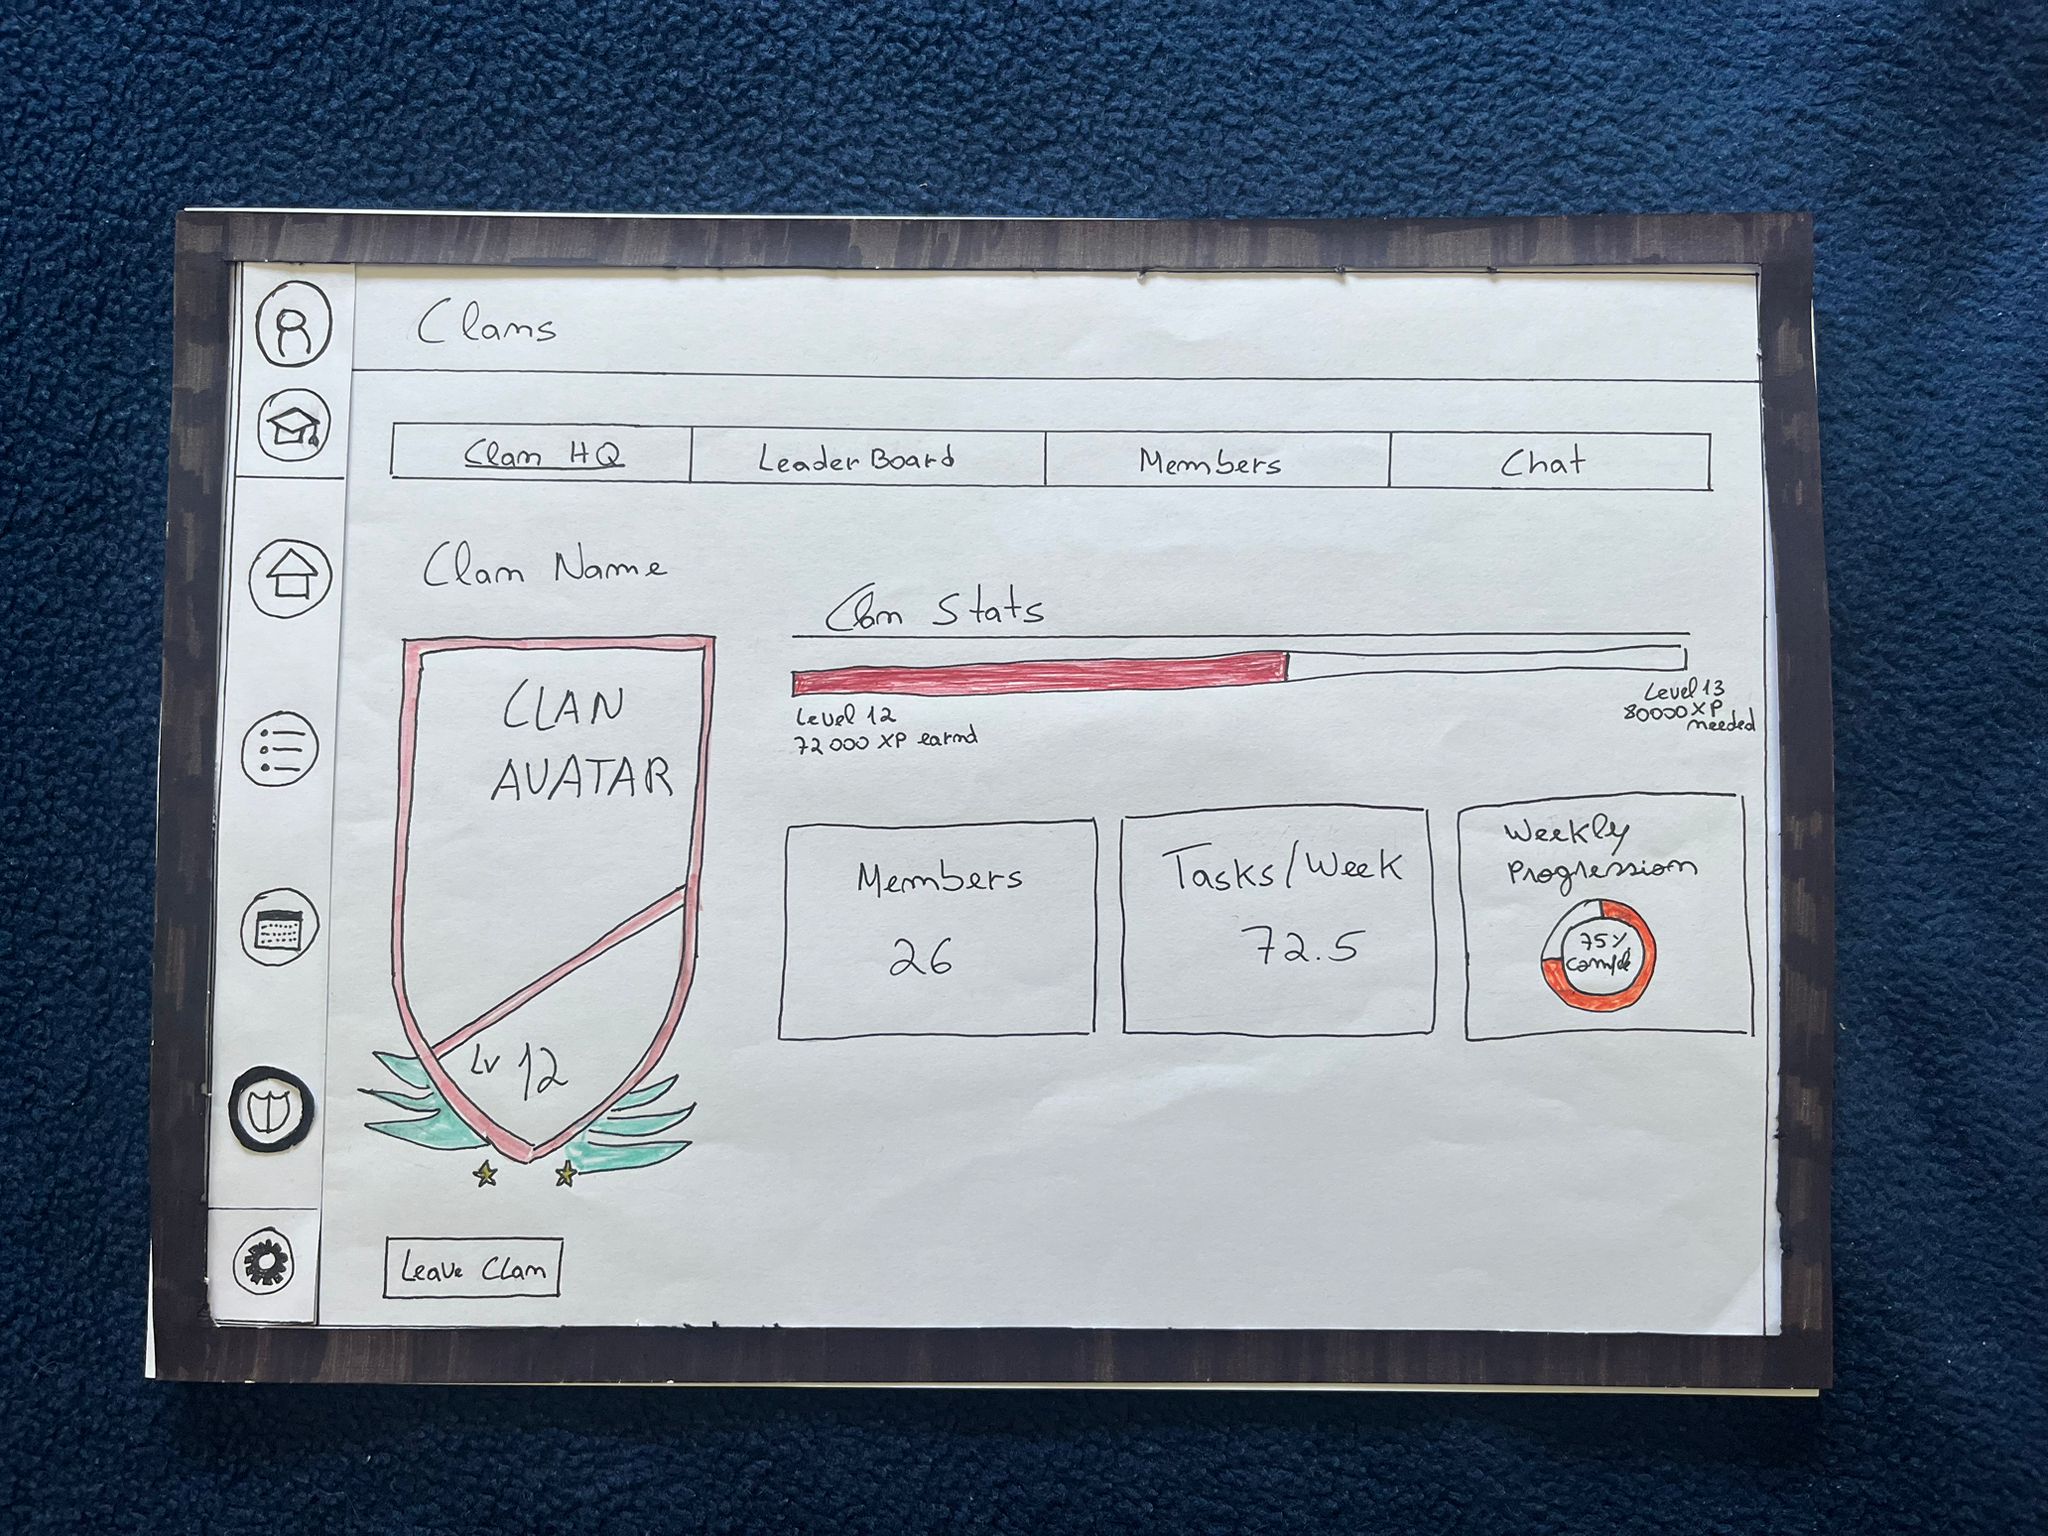 Clans
Clan HQ
LeaderBoard
Members
Chat
Clan Name
CLAN
AVATAR
Lv 12
Leave Clan
Clan Stats
Level 12
72000 XP earnd
Level 13
80000 XP
needed
Members
26
Tasks/Week
72.5
Weekly
Progression
75%